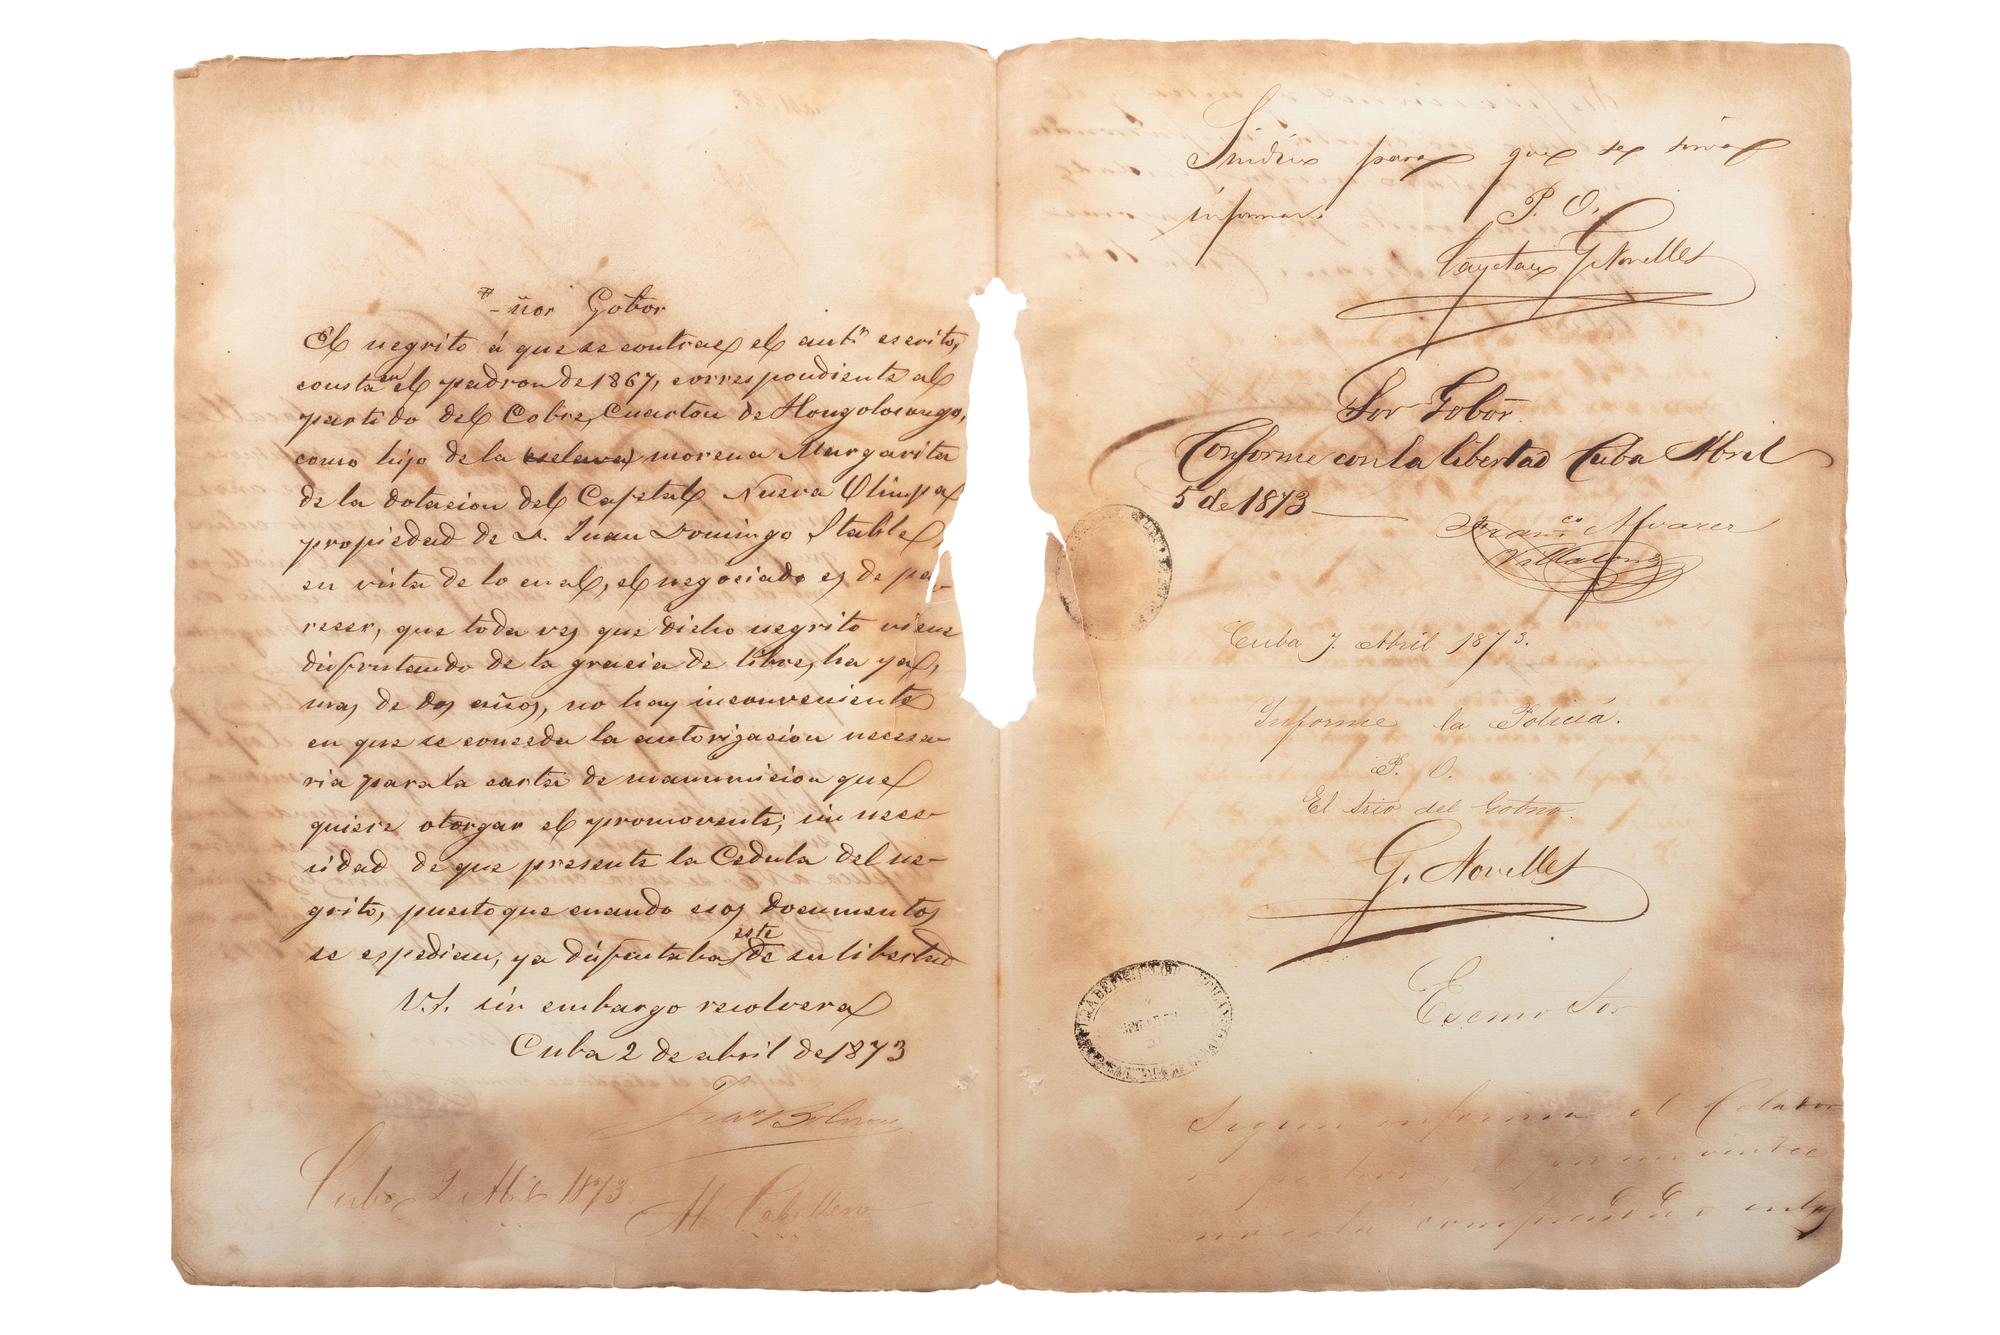 -ñor Gobor
El negrito á que se contrae el antr. escrito,
consta en el padron de 1867, correspondiente al
partido del Cobre, Cuarton de Hongolosongo,
como hijo de la (esclava) morena Margarita
de la dotacion del Cafetal Nueva Olimpa
propiedad de D. Juan Domingo Stable,
en vista de lo cual, el negociado es de pa-
recer, que toda vez que dicho negrito viene
disfrutando de la gracia de libre, ha ya,
mas de dos años, no hay inconveniente
en que se conceda la autorizacion necesa-
ria para la carta de manumision que
quiere otorgar el promovente; sin nece-
sidad de que presente la Cedula del ne-
grito, puesto que cuando esos documentos
se espedian, ya disfrutaba este de su libertad
V.S. sin embargo resolvera
Cuba 2 de abril de 1873
Cuba 2 Abril 1873.
M Caballero
Sindico para que se sirva
informar.
P. O.
Cayetano G. Novelles
Sor Gobor
Conforme con la libertad Cuba Abril
5 de 1873
Franco Alvarez
Villalon
Cuba 7. Abril 1873.
Informe la Policia.
P. O.
El Srio del Gobno.
G. Novelles
Escmo Sor
Segun informa el Celador
el promovente
no está comprendido en los